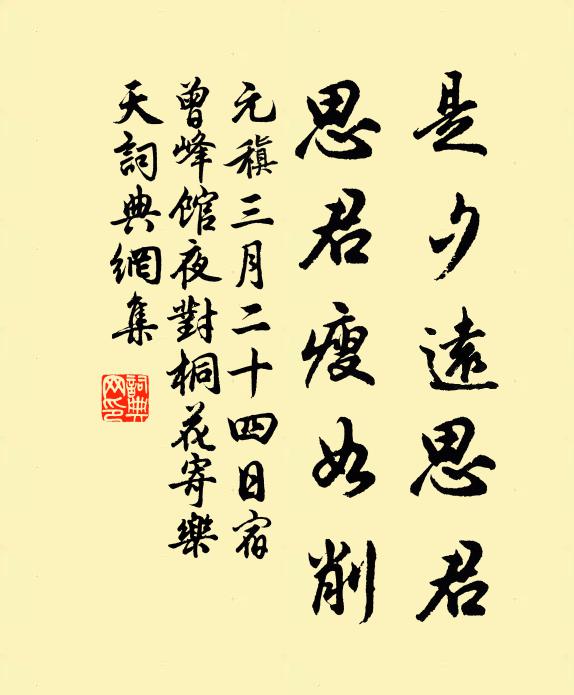 是夕遠思君
思君瘦如削
元稹三月二十四日宿
曾峰館夜對桐花寄樂
天詞典網集
詞典
网印